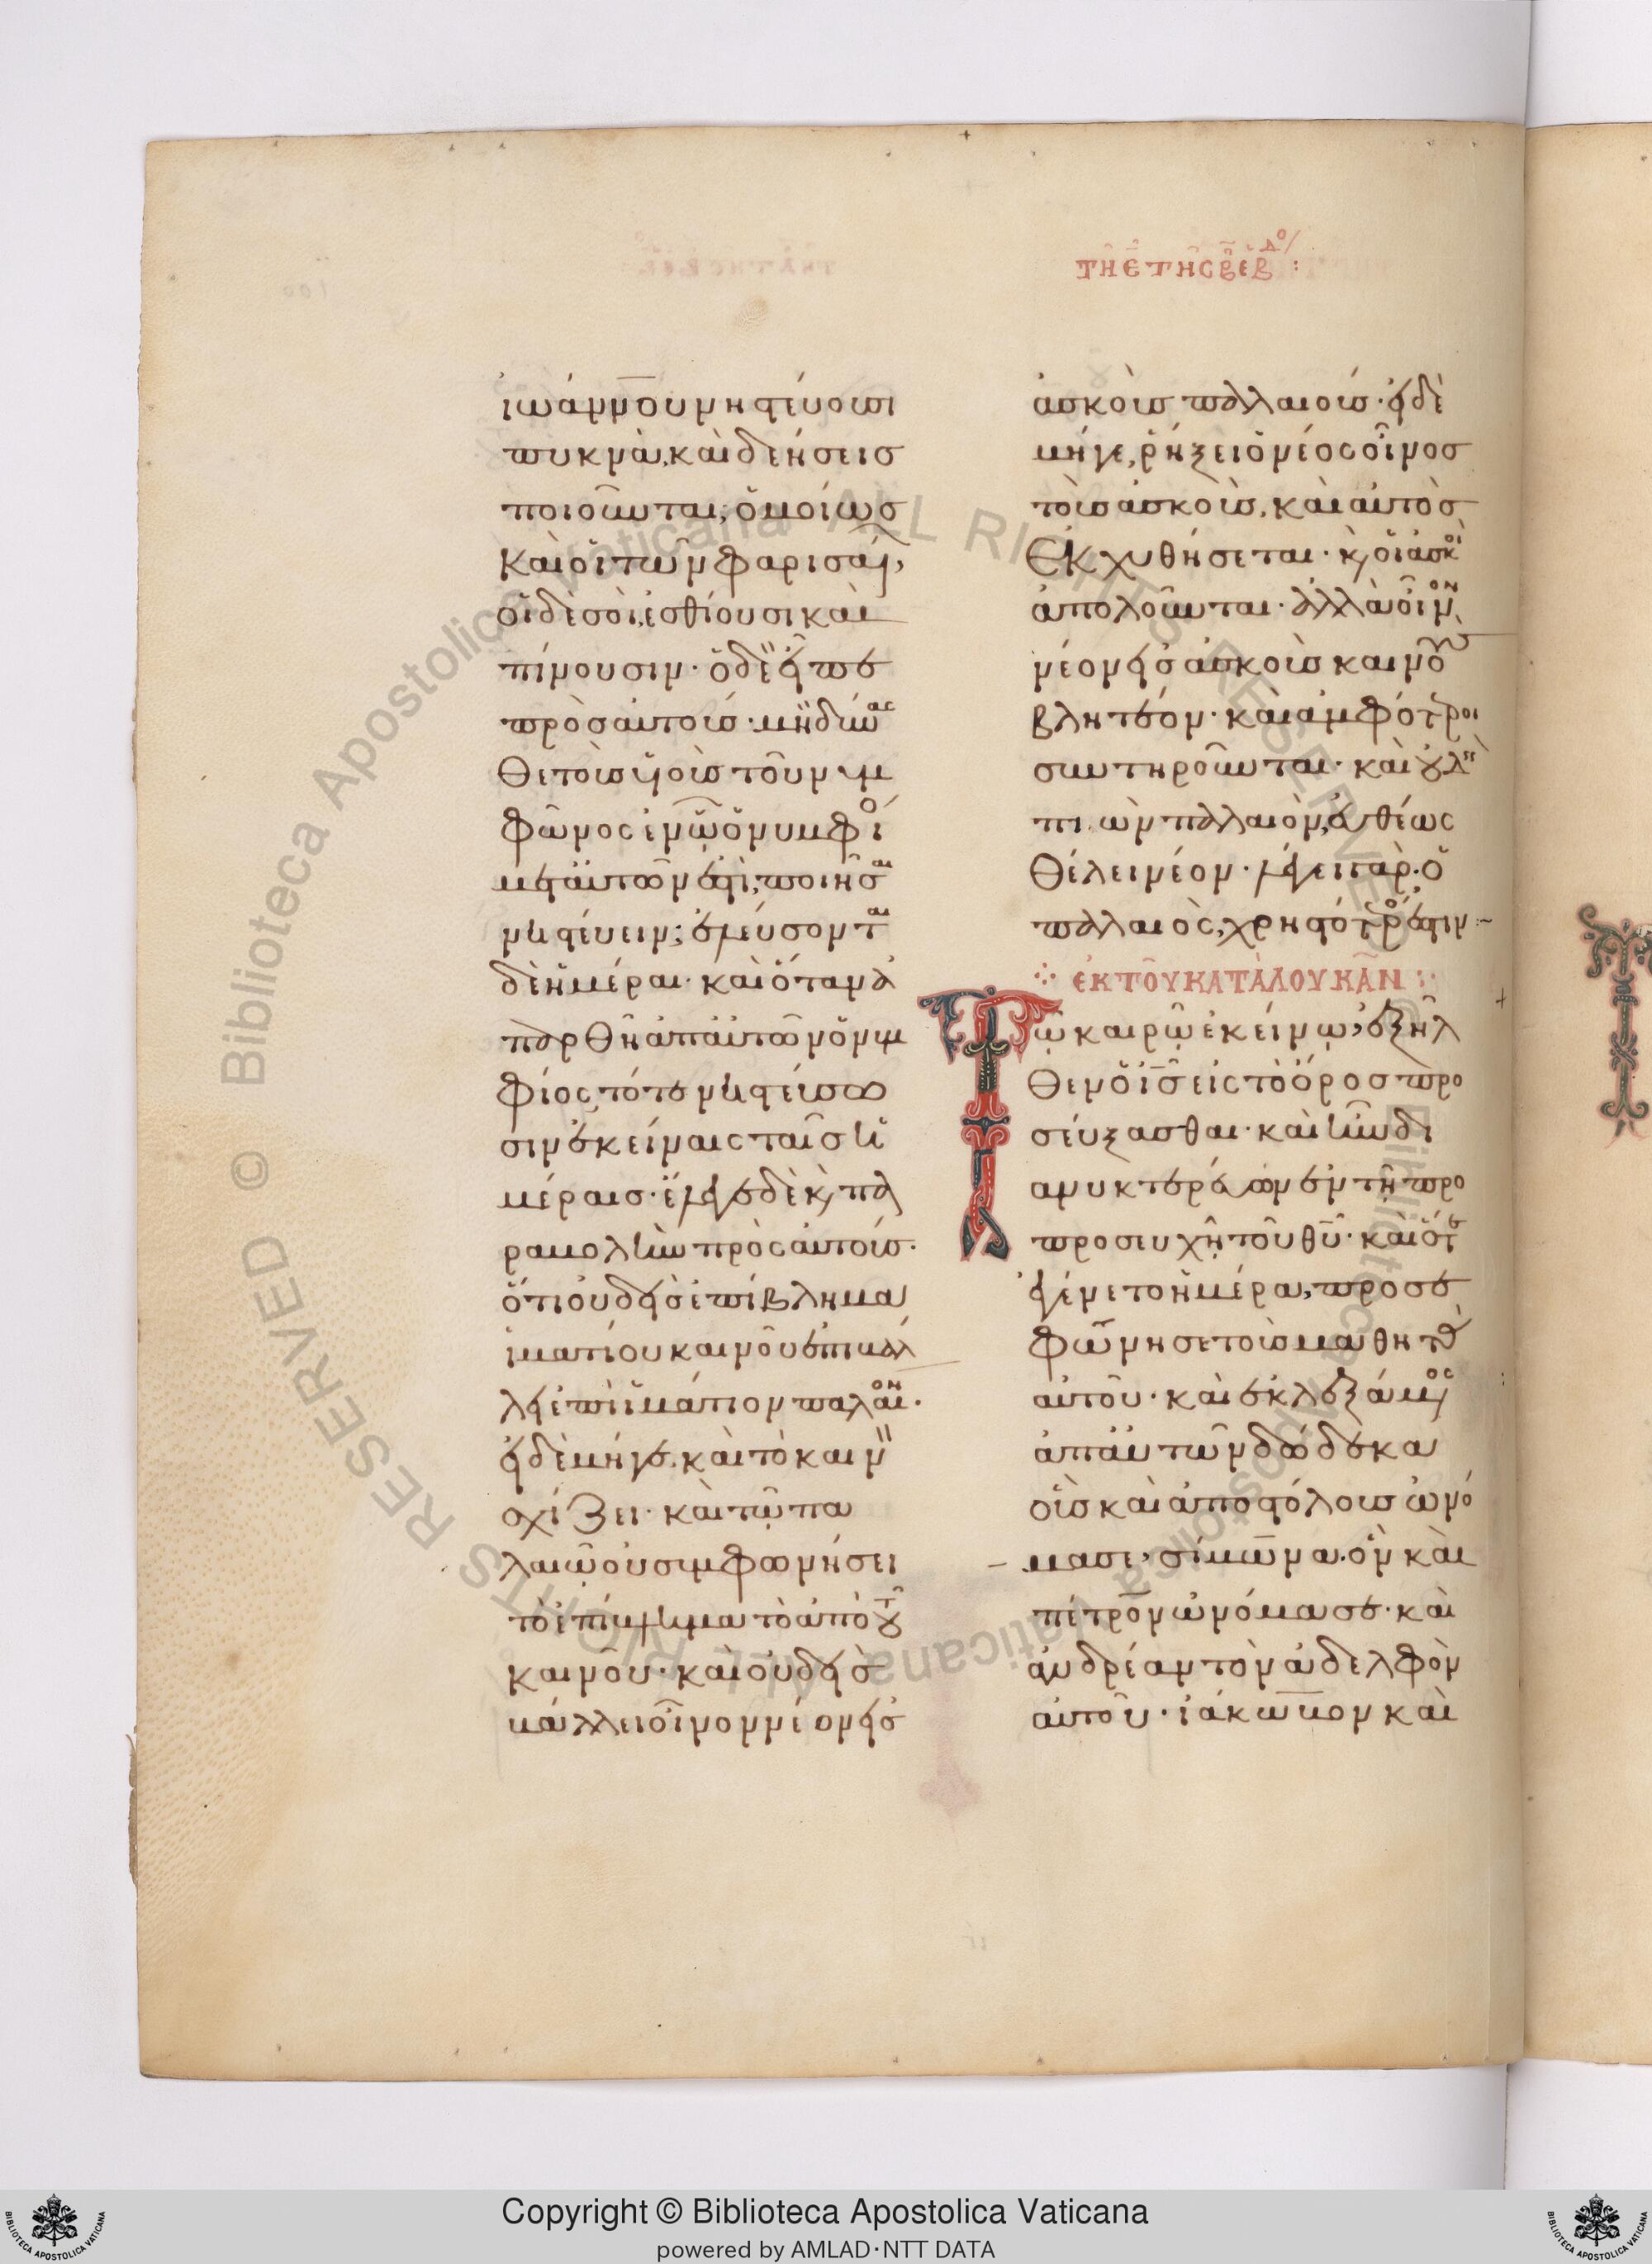 τῆ ε̄ τῆς β̄ ἑβδο/ :
ἰωάννου νηστεύουσι
πυκνὰ, καὶ δεήσεις
ποιοῦνται, ὁμοίως
καὶ οἱ τῶν φαρισαί,
οἱ δὲ σοὶ ἐσθίουσι καὶ
πίνουσιν · ὁ δὲ εἶπε
πρὸς αὐτούς · μὴ δύνας
θε τοὺς υἱοὺς τοῦ νυμ
φῶνος ἐν ὧ ὁ νυμφί
μετ αὐτῶν ἐστὶ, ποιῆσαι
νηστεύειν; ἐλεύσονται
δὲ ἡμέραι · καὶ ὅταν ἀ
παρθῆ ἀπ αὐτῶν ὁ νυμ
φίος, τότε νηστεύσου
σιν ἐκείναις ταῖς ἡ
μέραις · ἔλεγε δὲ κ, πα
ραβολὴν πρὸς αὐτούς ·
ὅτι οὐδεὶς ἐπίβλημα
ἱματίου καινοῦ ἐπιβάλ
λει ἐπὶ ἱμάτιον παλαιὸν ·
εἰ δὲ μήγε, καὶ τὸ καινὸν
σχίζει · καὶ τῶ πα
λαιῶ οὐ συμφωνήσει
τὸ ἐπίβλημα τὸ ἀπὸ τοῦ
καινοῦ · καὶ οὐδεὶς
βάλλει οἶνον νέον εἰς
ἀσκοὺς παλαιούς · εἰ δὲ
μήγε, ῥήξει ὁ νέος οἶνος
τοὺς ἀσκοὺς, καὶ αὐτὸς
ἐκχυθήσεται · κ, οἱ ἀσκοὶ
ἀπολοῦνται · ἀλλὰ οἶνον
νέον εἰς ἀσκοὺς καινοὺς
βλητέον · καὶ ἀμφότεροι
συντηροῦνται · καὶ οὐδεὶς
πιὼν παλαιὸν, εὐθέως
θέλει νέον · λέγει γὰρ · ὁ
παλαιὸς, χρηστότερός ἐστιν :~
ἐκ τοῦ κατὰ λουκᾶν :
Τῶ καιρῶ ἐκείνω, ἐξῆλ
θεν ὁ ι̅ς̅ εἰς τὸ ὄρος προ
σεύξασθαι · καὶ ἦν δι
ανυκτερεύων ἐν τῆ προ
προσευχῆ τοῦ θ̅υ̅ · καὶ ὅτε
ἐγένετο ἡμέρα, προσε
φώνησε τοὺς μαθητὰς
αὐτοῦ · καὶ ἐκλεξάμενος
ἀπ αὐτῶν δώδεκα
οὓς καὶ ἀποστόλους ὠνό
μασε, σίμωνα · ὃν καὶ
πέτρον ὠνόμασε · καὶ
ἀνδρέαν τὸν ἀδελφὸν
αὐτοῦ · ἰάκωβον καὶ
Copyright © Biblioteca Apostolica Vaticana
powered by AMLAD·NTT DATA